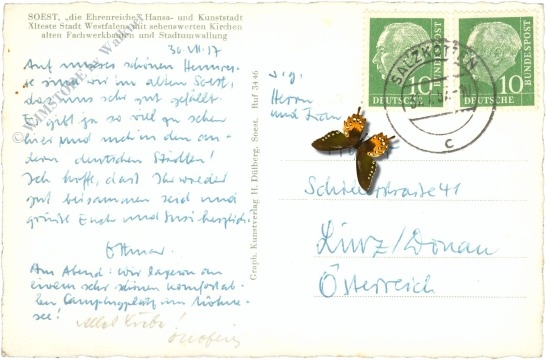 SOEST, „die Ehrenreiche", Hansa- und Kunststadt
Älteste Stadt Westfalens mit sehenswerten Kirchen
alten Fachwerkbauten und Stadtumwallung
30. VII. 57
Auf unserer schönen Heimrei-
se sind wir im alten Soest,
das uns sehr gut gefällt.
Es gibt ja so viel zu sehen
hier und auch in den an-
deren deutschen Städten!
Ich hoffe, dass Ihr wieder
gut beisammen seid und
grüße Euch und Susi herzlich.
Ottmar.
Am Abend: Wir lagern an
einem sehr schönen komfortab-
len Campingplatz am Möhne-
see!
Alles Liebe!
Graph. Kunstverlag H. Dülberg, Soest. Ruf 3446
© WAMSTORE by
DEUTSCHE BUNDESPOST
10
DEUTSCHE BUNDESPOST
10
SALZKOTTEN
c
Herrn
und Frau
41
Linz/Donau
Österreich